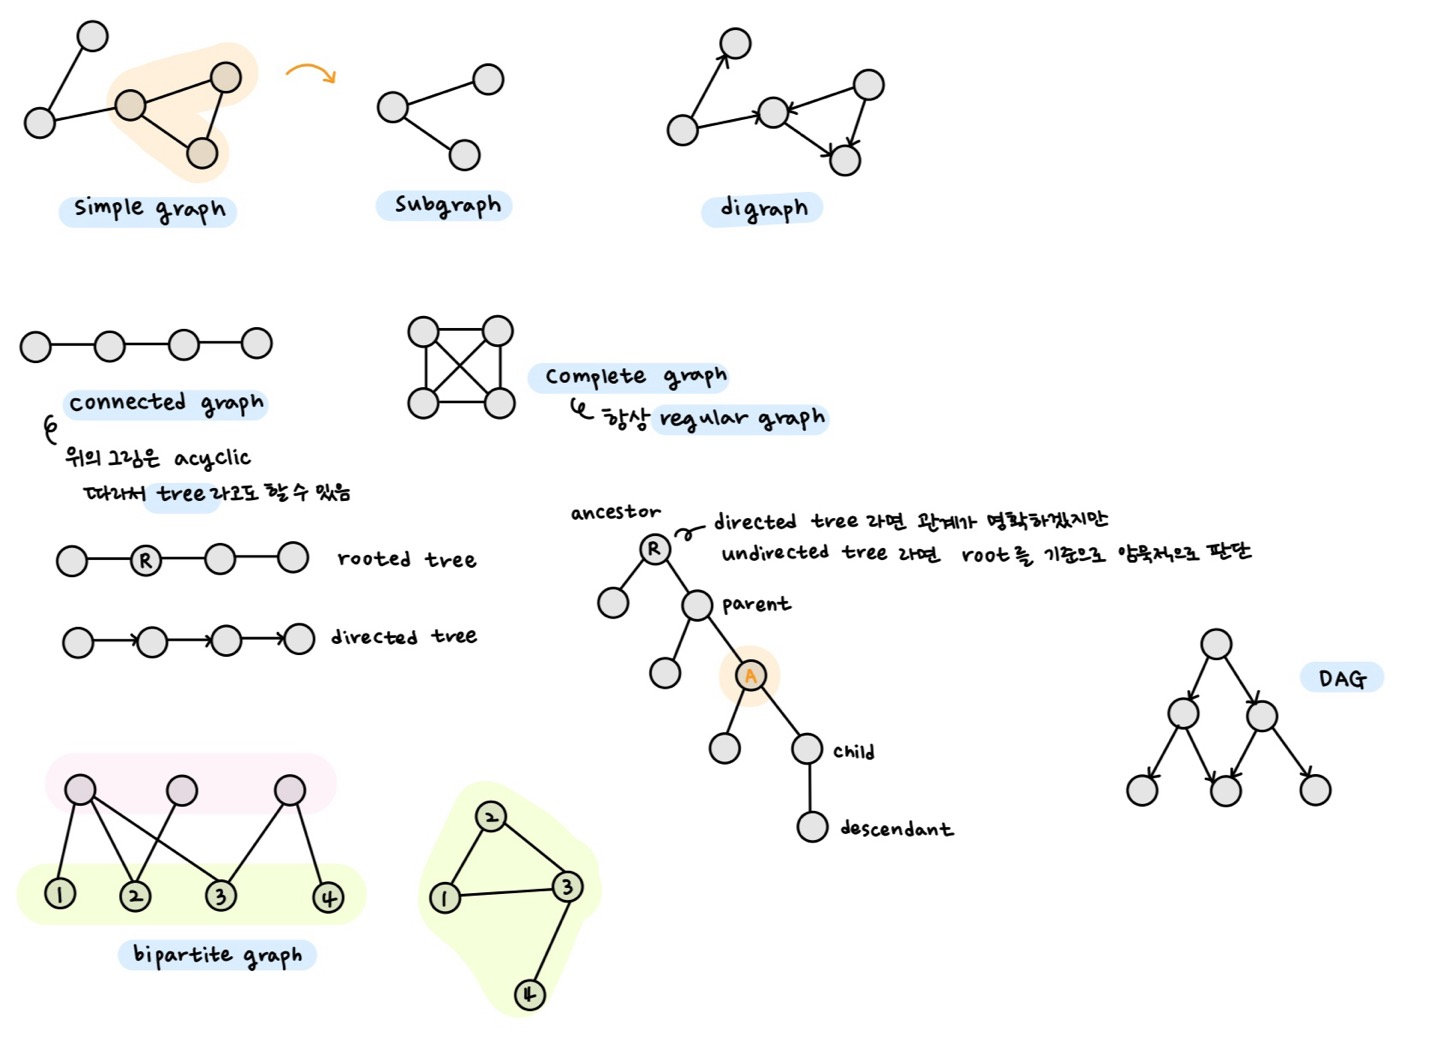 simple graph
subgraph
digraph
connected graph
위의 그림은 acyclic
따라서 tree라고도 할 수 있음
complete graph
항상 regular graph
R
rooted tree
directed tree
ancestor
R
directed tree 라면 관계가 명확하겠지만
undirected tree 라면 root를 기준으로 암묵적으로 판단
parent
A
child
descendant
DAG
1 2 3 4
bipartite graph
2
1 3
4